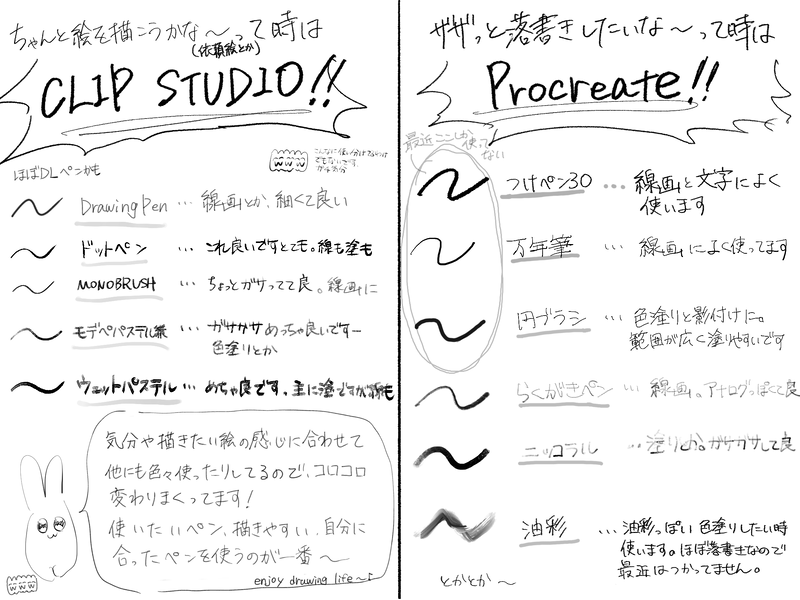 ちゃんと絵を描こうかな〜って時は
(依頼絵とか)
CLIP STUDIO!!
www
こんなに使い分けてるわけ
でもないです。
ほぼDLペンかも
Drawing Pen … 線画とか、細くて良い
ドットペン … これ良いですとても。線も塗も
MONOBRUSH … ちょっとガサってて良。線画に
モデペパステル紙 … ガサガサめっちゃ良いですー
色塗りとか
ウェットパステル … めちゃ良です、主に塗ですが線も
気分や描きたい絵の感じに合わせて
他にも色々使ったりしてるので、コロコロ
変わりまくってます!
使いたいペン、描きやすい、自分に
合ったペンを使うのが一番〜
enjoy drawing life〜♪
www
ザザっと落書きしたいな〜って時は
Procreate!!
最近ここしか使って
ない
つけペン30 … 線画と文字によく
使います
万年筆 … 線画によく使ってます
円ブラシ … 色塗りと影付けに。
範囲が広く塗りやすいです
らくがきペン … 線画。アナログっぽくて良
ニッコラル … 塗りとか。ガサガサして良
油彩 … 油彩っぽい色塗りしたい時
使います。ほぼ落書きなので
最近はつかってません。
とかとか〜